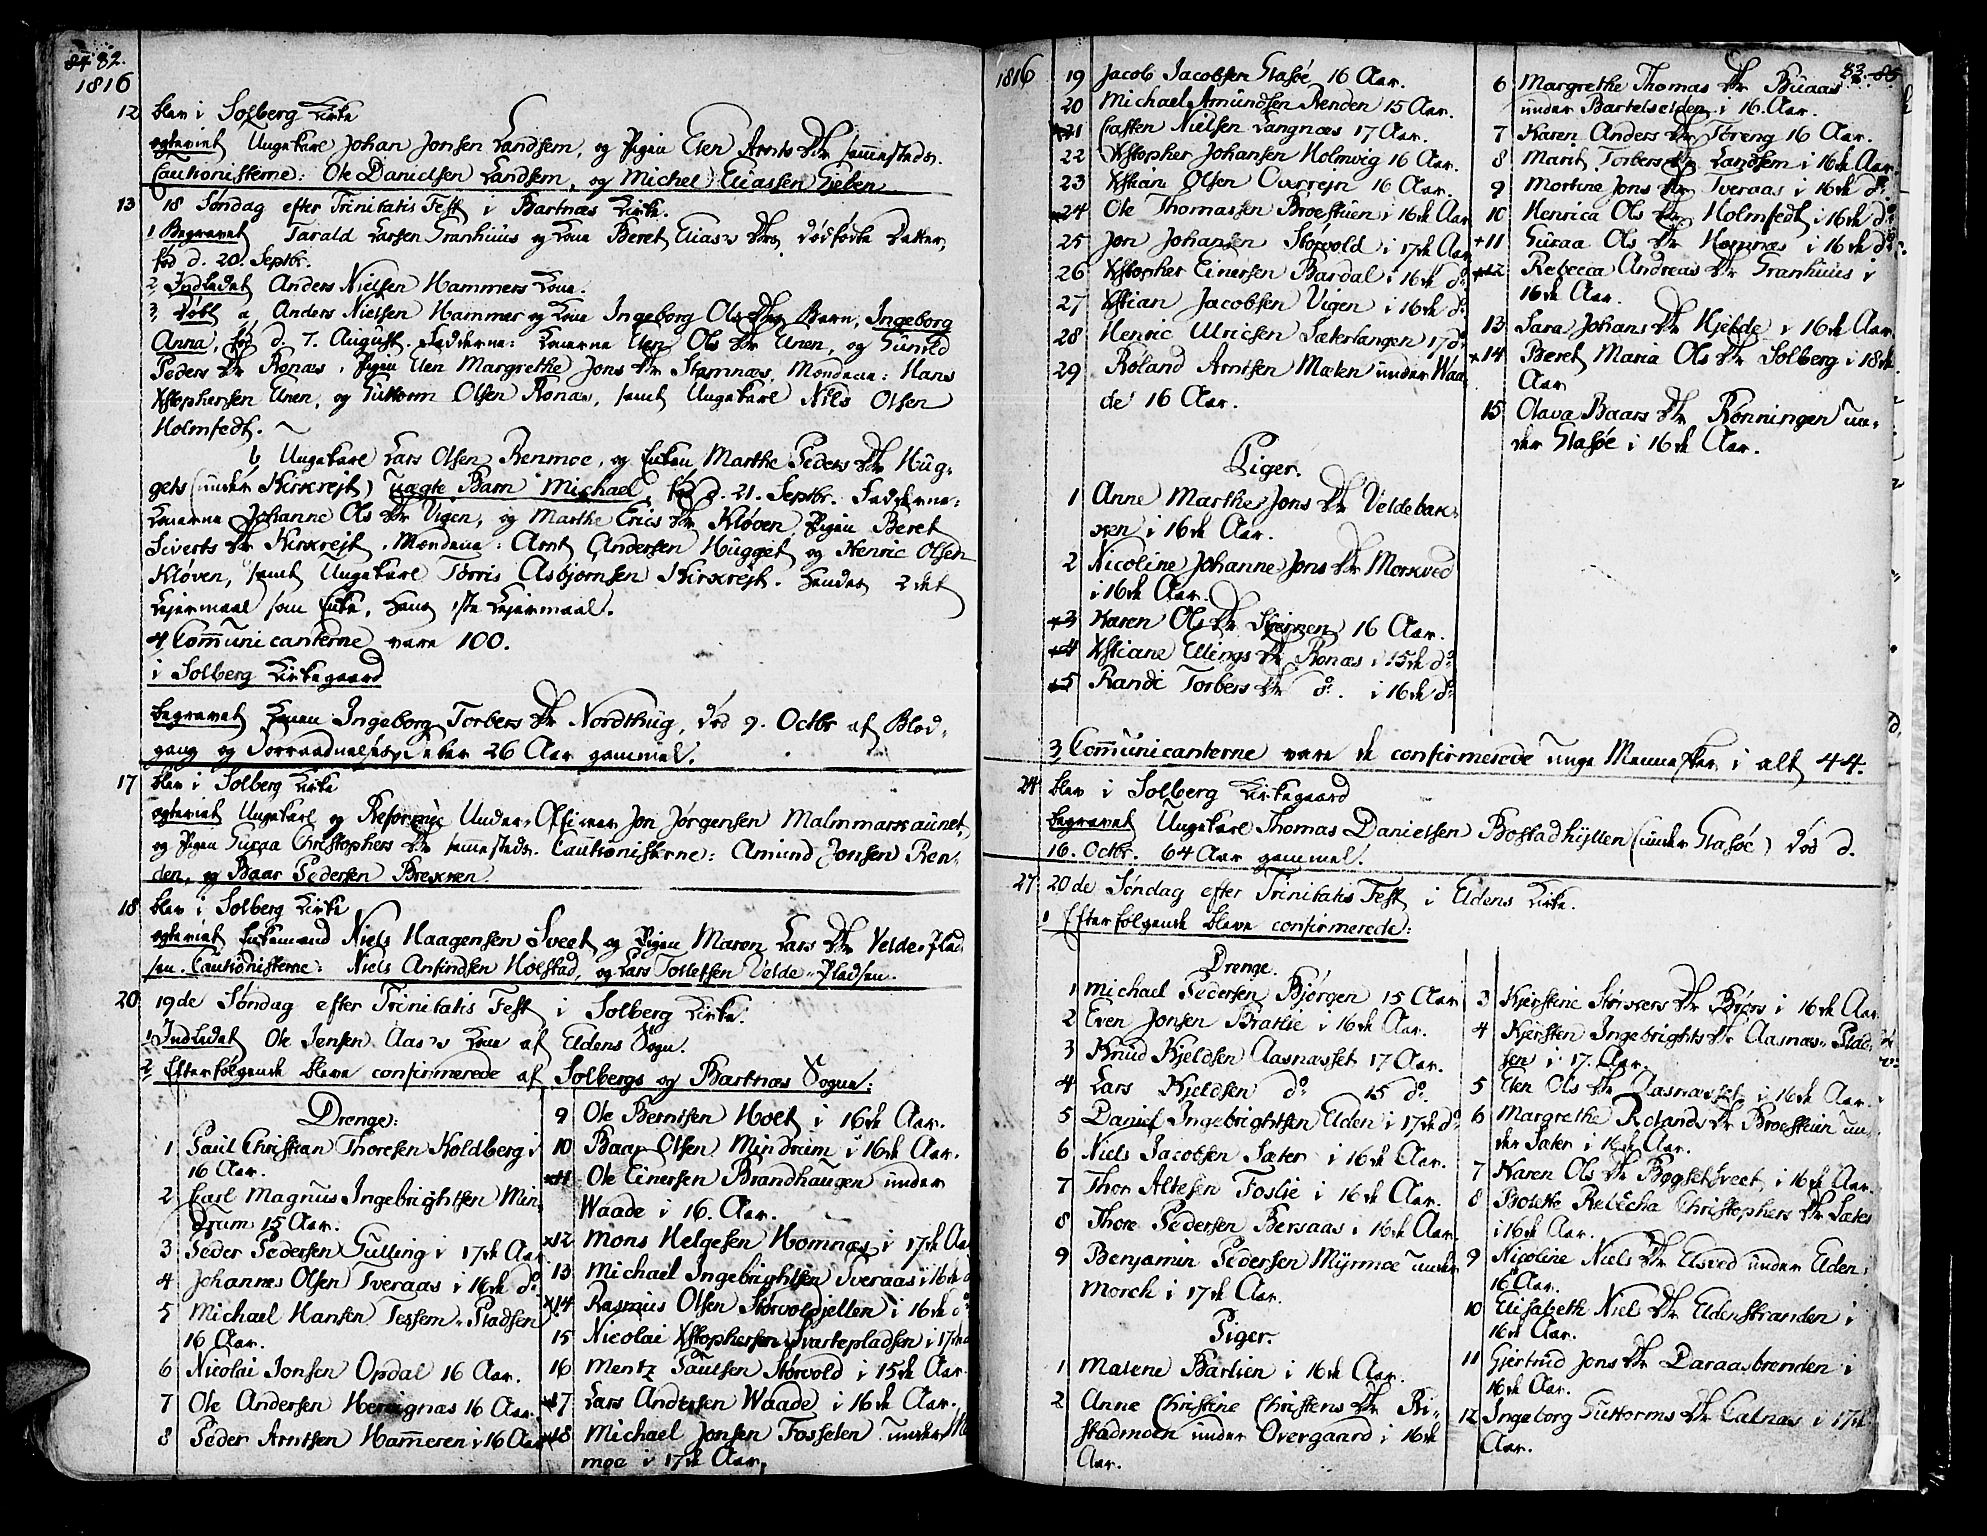 84 82.
1816
12 blev i Solberg Kirke
egteviet Ungekarl Johan Jonsen Landsem, og Pigen Elen Arnts Dr sammesteds.
Cautionisterne: Ole Danielsen Landsem, og Michel Eliassen Gieben
13 18 Søndag efter Trinitatis Fest i Bartnæs Kirke.
1 Begravet Tarald Larsen Granhuus og Kone Beret Elias's Drs dødfødte Datter,
fød d. 20. Septbr.
2 Indledet Anders Nielsen Hammers Kone.
3, Døbt a, Anders Nielsen Hammer og Kone Ingeborg Ols Drs Barn, Ingeborg
Anna, fød d. 7. August. Fadderne: Konerne Elen Ols Dr Elnen, og Gunild
Peders Dr Ronæs, Pigen Elen Margrethe Jons Dr Stamnæs, Mændene: Hans
Xstophersen Elnen, og Guttorm Olsen Ronæs, samt Ungekarl Nils Olsen
Holmfedt. ~
b, Ungekarl Lars Olsen Renmoe, og Enken Marthe Peders Dr Hug-
gets (under Kirkrejt) uægte Barn Michael, fød d. 21. Septbr. Fadderne:
Konerne Johanne Ols Dr Vigen, og Marthe Erics Dr Kløven, Pigen Beret
Siverts Dr Kirkrejt. Mændene: Arnt Andersen Hugget og Henric Olsen
Kløven, samt Ungekarl Torris Asbjørnsen Kirkrejt. Hendes 2det
Lejermaal som Enke, hans 1ste Lejermaal.
4 Communicanterne vare 100.
i Solberg Kirkegaard
begravet Konen Ingeborg Torbers Dr Nordthug, død 9. Octbr af Blod-
gang og Forraadnelsesfeber 26 Aar gammel.
17 blev i Solberg Kirke
egteviet Ungekarl og Reformée Under-Officeer Jon Jørgensen Malmmarkaunet,
og Pigen Guraa Christophers Dr sammesteds. Cautionisterne: Amund Jonsen Ren-
den, og Baar Pedersen Brekken.
18 blev i Solberg Kirke
egteviet Enkemand Niels Haagensen Sveet og Pigen Maren Lars Dr Velde-Plad-
sen. Cautionisterne: Niels Anfindsen Holstad, og Lars Tollefsen Velde-Pladsen.
20 19de Søndag efter Trinitatis Fest i Solberg Kirke.
1 Indledet Ole Jensen Aas's Kone af Eldens Sogn.
2 Efterfølgende bleve confirmerede af Solbergs og Bartnæs Sogne:
Drenge:
1 Paul Christian Thoresen Koldberg i
16 Aar.
2 Carl Magnus Ingebrightsen Min-
drum 15 Aar.
3 Peder Pedersen Gulling i 17de Aar
4 Johannes Olsen Tveraas i 16de do
5 Michael Hansen Tessem-Pladsen
16 Aar.
6 Nicolai Jonsen Opdal 16 Aar.
7 Ole Andersen Hernignæs 16 Aar.
8 Peder Arntsen Hammeren i 16 Aar
9 Ole Berntsen Hoel i 16de Aar.
10 Baar Olsen Mindrum i 16de Aar.
x11 Ole Einersen Brandhaugen under
Waade i 16. Aar.
x12 Mons Helgesen Homnæs i 17de Aar
13 Michael Ingebrightsen Tveraas i 16de d
x14 Rasmus Olsen Størvoldjellen i 16de do
15 Nicolai Xstophersen Svartepladsen i 17de d
16 Mentz Paulsen Størvold i 15de Aar.
x17 Lars Andersen Waade i 16de Aar.
x18 Michael Jonsen Fosselen under M
moe i 17de Aar.
1816
83. 85
19 Jacob Jacobsen Stasøe 16 Aar.
20 Michael Amundsen Renden 15 Aar.
x21 Casten Nielsen Langnæs 17 Aar.
22 Xstopher Johansen Holmvig 16 Aar.
23 Xstian Olsen Overrejn 16 Aar.
x24 Ole Thomassen Broestuen i 16de Aar
25 Jon Johansen Størvold i 17de Aar
26 Xstopher Einersen Bardal i 16de do
27 Xstian Jacobsen Vigen i 16de do
28 Henric Ulricsen Sæterlangen 17 do
29 Roland Arntsen Mælen under Waa-
de 16 Aar.
Piger.
1 Anne Marthe Jons Dr Veldebak-
ken i 16de Aar.
2 Nicoline Johanne Jons Dr Morkved
i 16de Aar.
x3 Karen Ols Dr Stjernen 16 Aar.
x4 Xstiane Ellings Dr Ronæs i 15de do
x5 Randi Torbers Dr do. i 16de do
6 Margrethe Thomas Dr Buaas
under Bartelselden i 16. Aar.
7 Karen Anders Dr Støreng 16 Aar.
8 Marit Torbers Dr Landsem i 16de Aar
9 Mortine Jons Dr Tveraas i 16de do
10 Henrica Ols Dr Holmfedt i 16de do
+11 Guraa Ols Dr Homnæs i 16de do
x12 Rebecca Andreas Dr Granhuus i
16de Aar.
13 Sara Johans Dr Kjelde i 16de Aar.
x14 Beret Maria Ols Dr Solberg i 18de
Aar
15 Olava Baars Dr Rønningen un-
der Stasøe i 16de Aar.
3 Communicanterne vare de confirmerede unge Mennesker i alt 44.
24 blev i Solberg Kirkegaard
begravet Ungekarl Thomas Danielsen Bolstadhyllen (under Stasøe) død d.
16. Octbr. 64 Aar gammel.
27 20de Søndag efter Trinitatis Fest i Eldens Kirke.
1 Efterfølgende bleve confirmerede:
Drenge.
1 Michael Pedersen Bjørgen 15 Aar
2 Even Jonsen Bratlie i 16de Aar.
3 Knud Kjeldsen Aasnasset 17 Aar.
4 Lars Kjeldsen do 15 do.
5 Daniel Ingebrightsen Elden i 17de do
6 Niels Jacobsen Sæter i 16de Aar.
7 Thor Altesen Foslie i 16de Aar.
8 Thore Pedersen Bersaas i 16de Aar.
9 Benjamin Pedersen Myrmoe under
Morch i 17de Aar.
Piger.
1 Malene Barlien i 16de Aar.
2 Anne Christine Christens Dr Ri-
stadmoen under Overgaard i 16de
Aar.
3 Kjerstine Størkers Dr Børs i 16de Aar
4 Kjersten Ingebrights Dr Aasnæs-Plad-
sen i 17. Aar.
5 Elen Ols Dr Aasnasset i 16de Aar.
6 Margrethe Rolands Dr Broestuen un-
der Sæter i 16de Aar.
7 Karen Ols Dr Bøgsetsveet i 16de Aar.
8 Bolette Rebecha Christophers Dr Sæter
i 16de Aar.
9 Nicoline Niels Dr Elsved under Elden i
16 Aar.
10 Elisabeth Niels Dr Eldenstranden i
16de Aar.
11 Gjertrud Jons Dr Daraasbrenden i
16de Aar.
12 Ingeborg Guttorms Dr Calnæs i 17de
Aar.